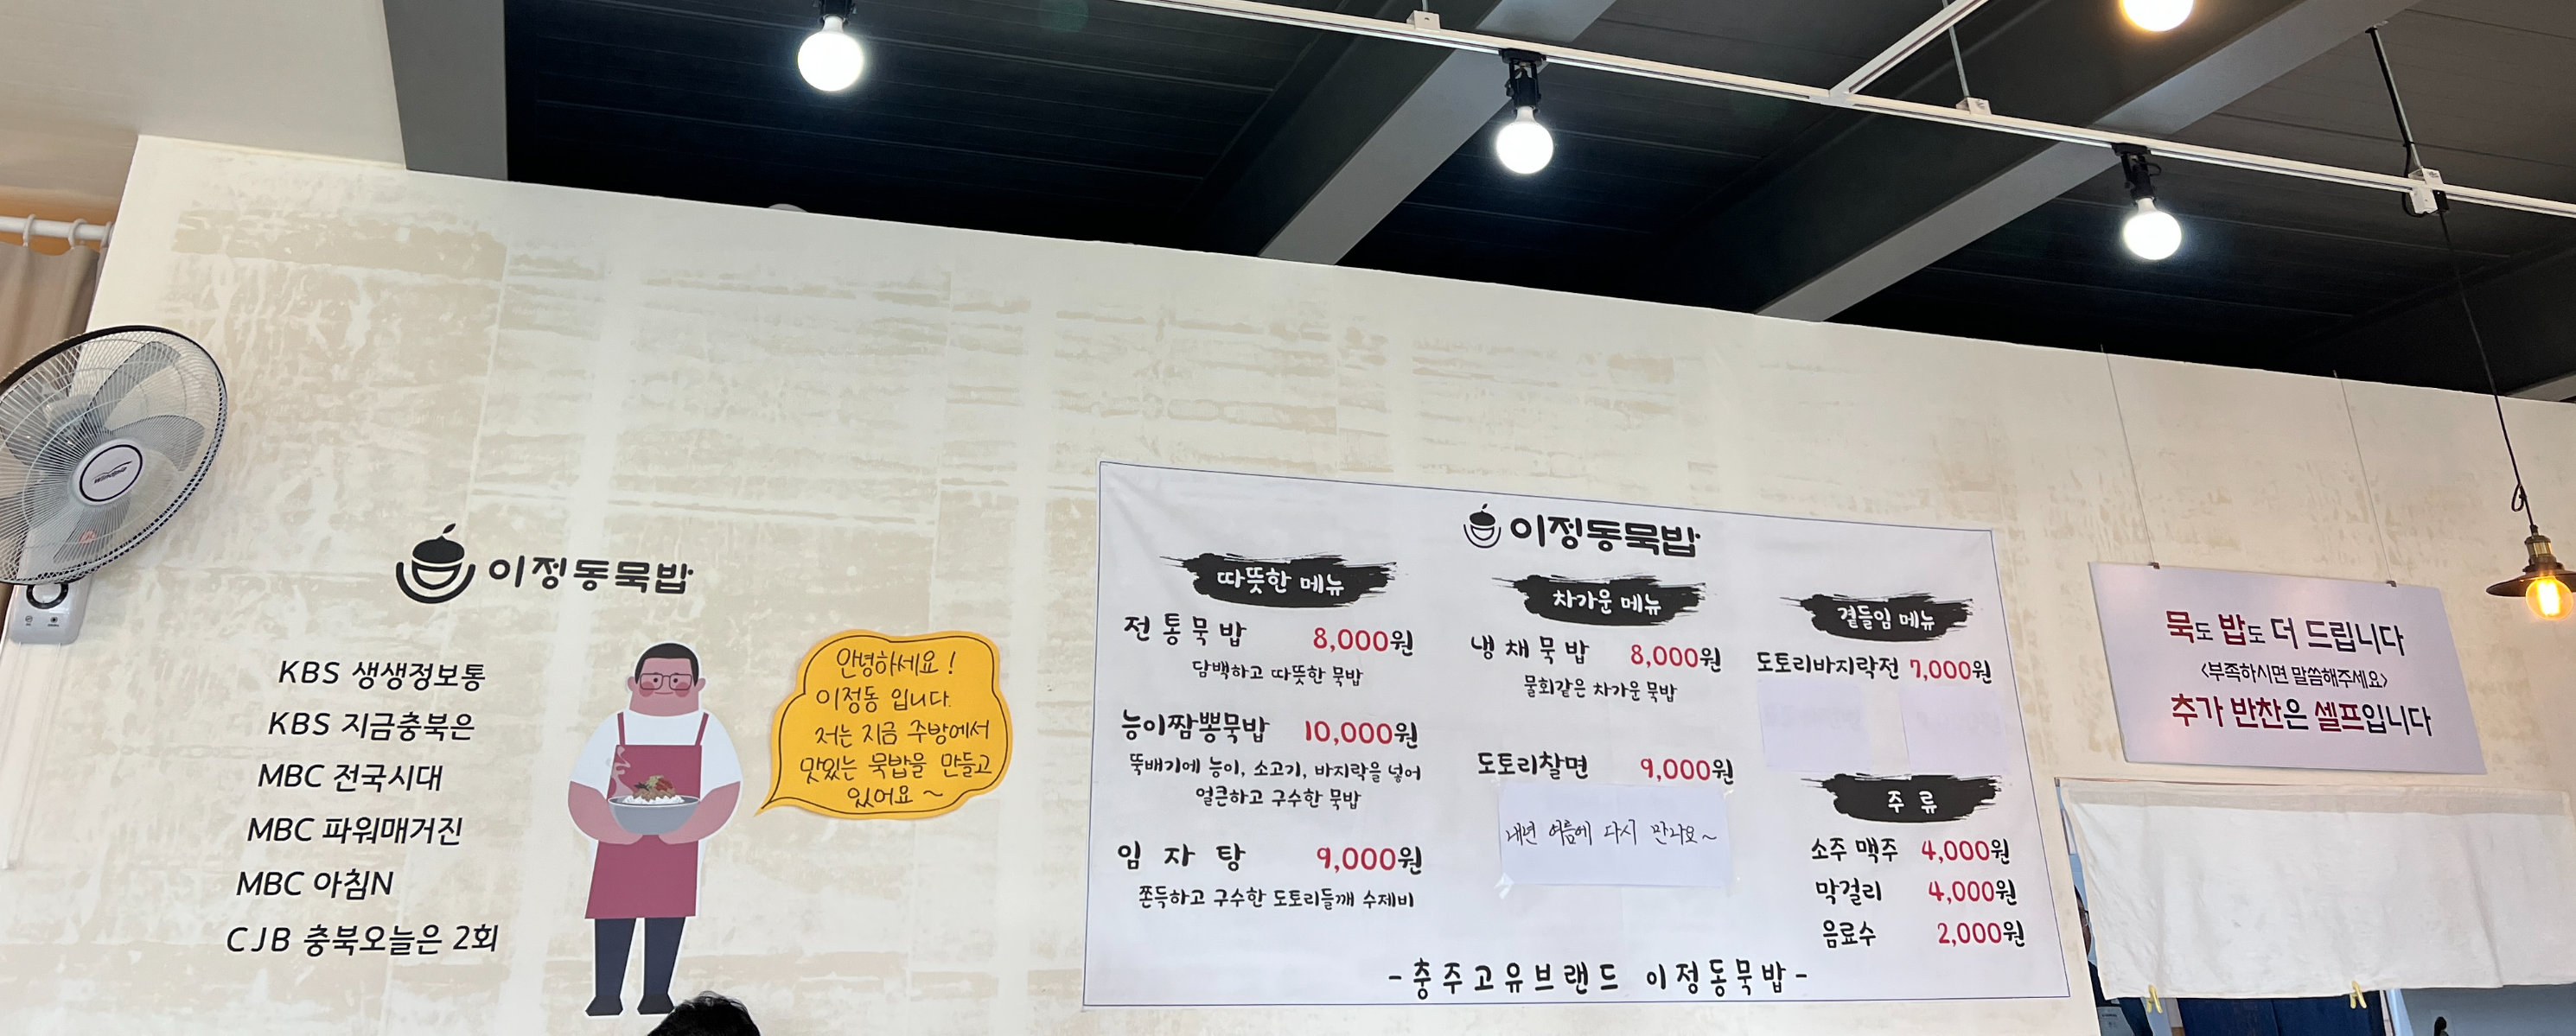 이정동묵밥
KBS 생생정보통
KBS 지금충북은
MBC 전국시대
MBC 파워매거진
MBC 아침N
CJB 충북오늘은 2회
안녕하세요!
이정동 입니다.
저는 지금 주방에서
맛있는 묵밥을 만들고
있어요~
이정동묵밥
따뜻한 메뉴
전통묵밥 8,000원
담백하고 따뜻한 묵밥
능이짬뽕묵밥 10,000원
뚝배기에 능이, 소고기, 바지락을 넣어
얼큰하고 구수한 묵밥
임자탕 9,000원
쫀득하고 구수한 도토리들깨 수제비
차가운 메뉴
냉채묵밥 8,000원
물회같은 차가운 묵밥
도토리찰면 9,000원
내년 여름에 다시 만나요~
곁들임 메뉴
도토리바지락전 7,000원
주류
소주 맥주 4,000원
막걸리 4,000원
음료수 2,000원
-충주고유브랜드 이정동묵밥-
묵도 밥도 더 드립니다
<부족하시면 말씀해주세요>
추가 반찬은 셀프입니다